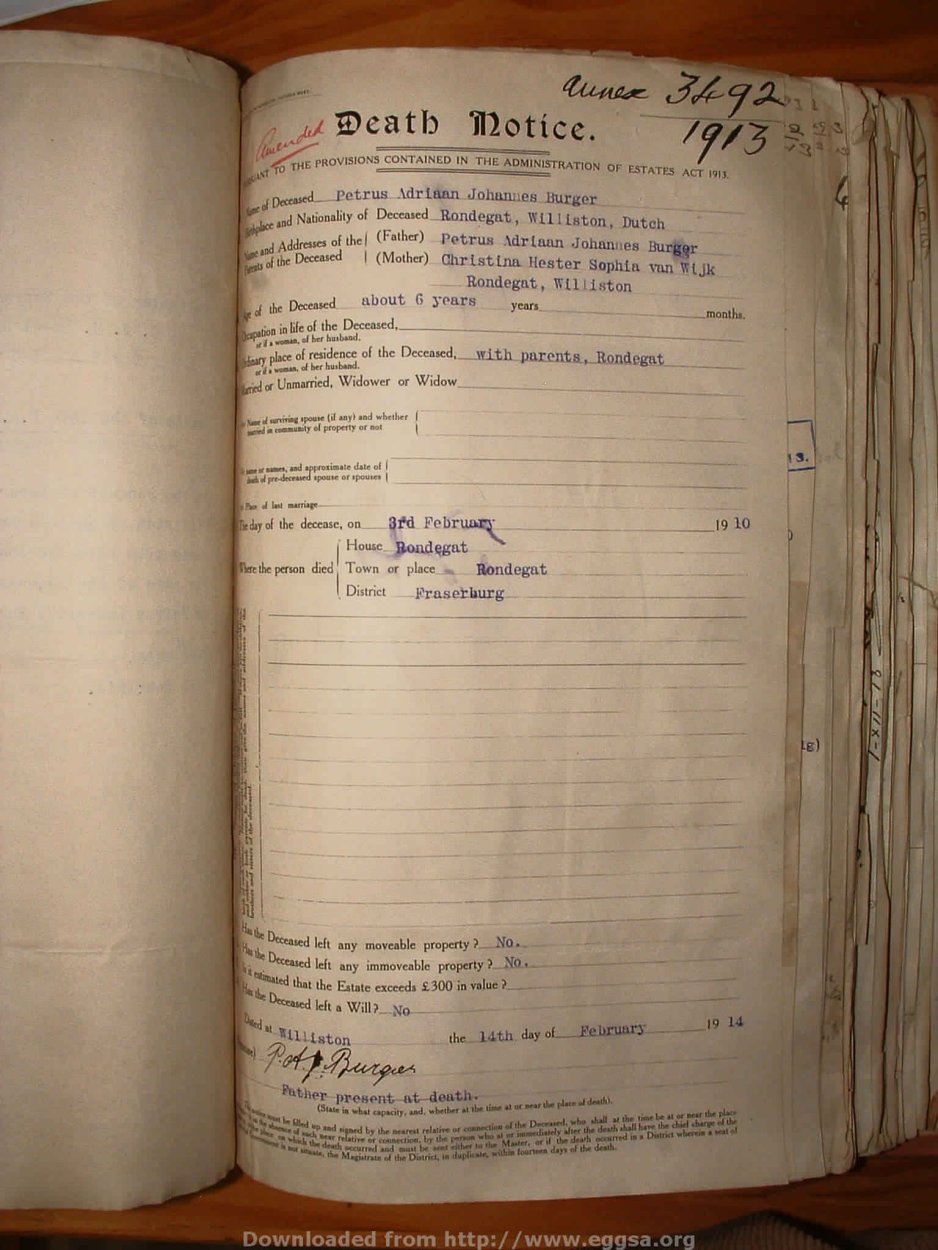 annex 3492
1913
Amended Death Notice.
TO THE PROVISIONS CONTAINED IN THE ADMINISTRATION OF ESTATES ACT 1913.
of Deceased Petrus Adriaan Johannes Burger
and Nationality of Deceased Rondegat, Williston, Dutch
and Addresses of the (Father) Petrus Adriaan Johannes Burger
of the Deceased (Mother) Christina Hester Sophia van Wijk
Rondegat, Williston
of the Deceased about 6 years years months.
in life of the Deceased,
or if a woman, of her husband.
place of residence of the Deceased, with parents, Rondegat
or if a woman, of her husband.
or Unmarried, Widower or Widow
Name of surviving spouse (if any) and whether
married in community of property or not
name or names, and approximate date of
death of pre-deceased spouse or spouses
Place of last marriage
The day of the decease, on 3rd February 19 10
House Rondegat
Where the person died Town or place Rondegat
District Fraserburg
brothers and sisters of the deceased.
Has the Deceased left any moveable property? No.
Has the Deceased left any immoveable property? No.
Is it estimated that the Estate exceeds £300 in value?
Has the Deceased left a Will? No
Dated at Williston the 14th day of February 19 14
P.A.J. Burger
Father present at death.
(State in what capacity, and, whether at the time at or near the place of death).
must be filled up and signed by the nearest relative or connection of the Deceased, who shall at the time be at or near the place
the absence of such near relative or connection, by the person who at or immediately after the death shall have the chief charge of the
place on which the death occurred and must be sent either to the Master, or if the death occurred in a District wherein a seat of
is not situate, the Magistrate of the District, in duplicate, within fourteen days of the death.
Downloaded from http://www.eggsa.org